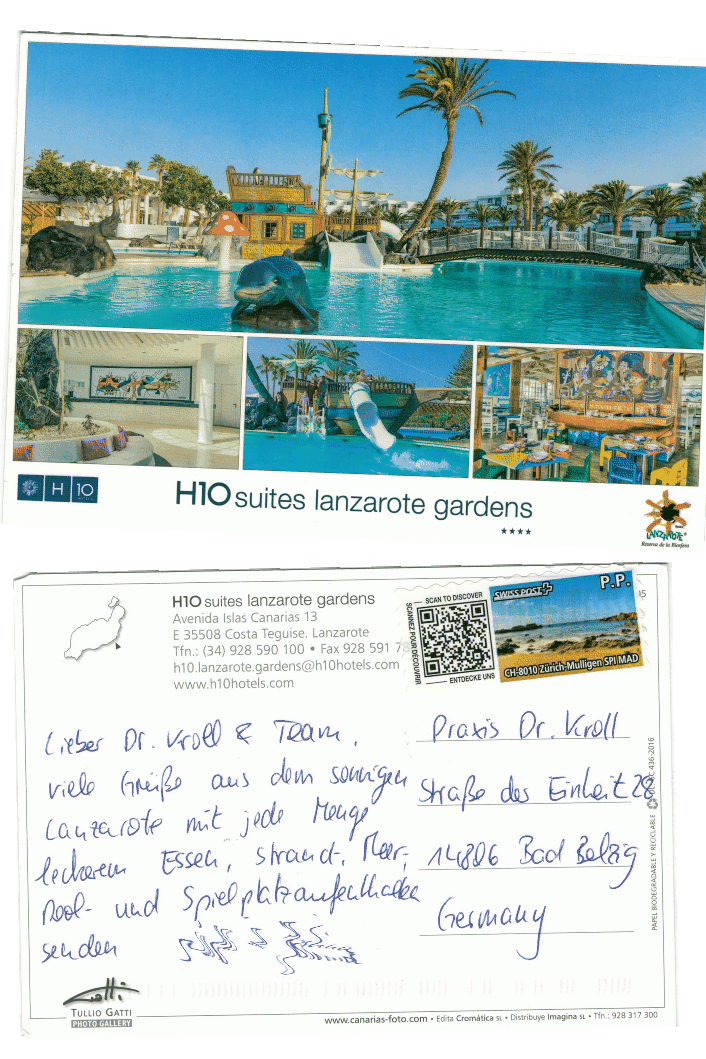 H10
H10 suites lanzarote gardens
★★★★
LANZAROTE
Reserva de la Biosfera
H10 suites lanzarote gardens
Avenida Islas Canarias 13
E 35508 Costa Teguise. Lanzarote
Tfn.: (34) 928 590 100 • Fax 928 591 7
h10.lanzarote.gardens@h10hotels.com
www.h10hotels.com
SCAN TO DISCOVER
SCANNEZ POUR DÉCOUVRIR
ENTDECKE UNS
SWISS POST
P.P.
CH-8010 Zürich-Mülligen SPI MAD
Lieber Dr. Kroll & Team,
viele Grüße aus dem sonnigen
Lanzarote mit jede Menge
leckerem Essen, Strand-, Meer-,
Pool- und Spielplatzaufenthalten
senden
Praxis Dr. Kroll
Straße des Einheit 28
14806 Bad Belzig
Germany
436-2016
PAPEL BIODEGRADABLE Y RECICLABLE
TULLIO GATTI
PHOTO GALLERY
www.canarias-foto.com • Edita Cromática SL • Distribuye Imagina SL • Tfn.: 928 317 300